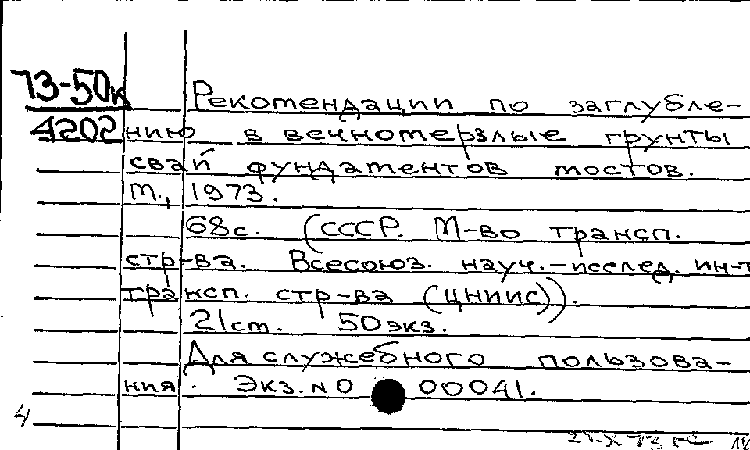 73-50к
4202
Рекомендации по заглубле-
нию в вечномерзлые грунты
свай фундаментов мостов.
М., 1973.
68с. (СССР. М-во трансп.
стр-ва. Всесоюз. науч.-исслед. ин-т
трансп. стр-ва (ЦНИИС)).
21см. 50экз.
Для служебного пользова-
ния. Экз. №О 00041.
4